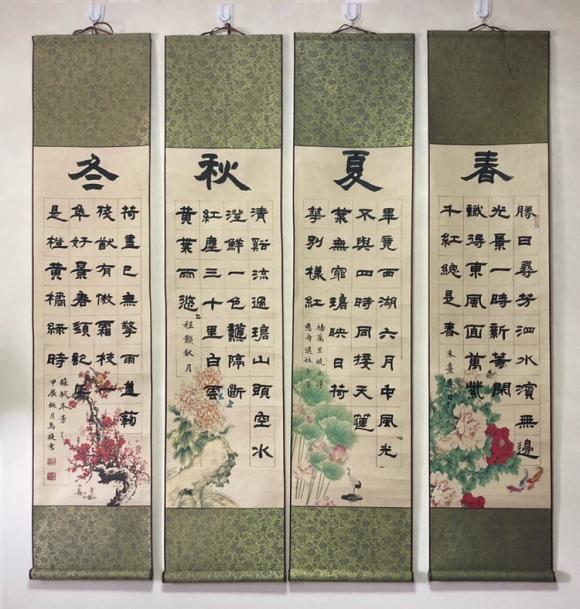 春
勝日尋芳泗水濱無邊
光景一時新等閑
識得東風面萬紫
千紅總是春
朱熹
夏
畢竟西湖六月中風光
不與四時同接天蓮
葉無窮碧映日荷
華別樣紅
楊萬里曉出淨
慈寺送林子方
秋
清谿流過碧山頭空水
澄鮮一色龝隔斷
紅塵三十里白雲
黃葉兩悠
程顥秋月
冬
荷盡已無擎雨蓋菊
殘猶有傲霜枝一
年好景君須記
是橙黃橘綠時
蘇軾冬景
甲辰桃月馬捷書